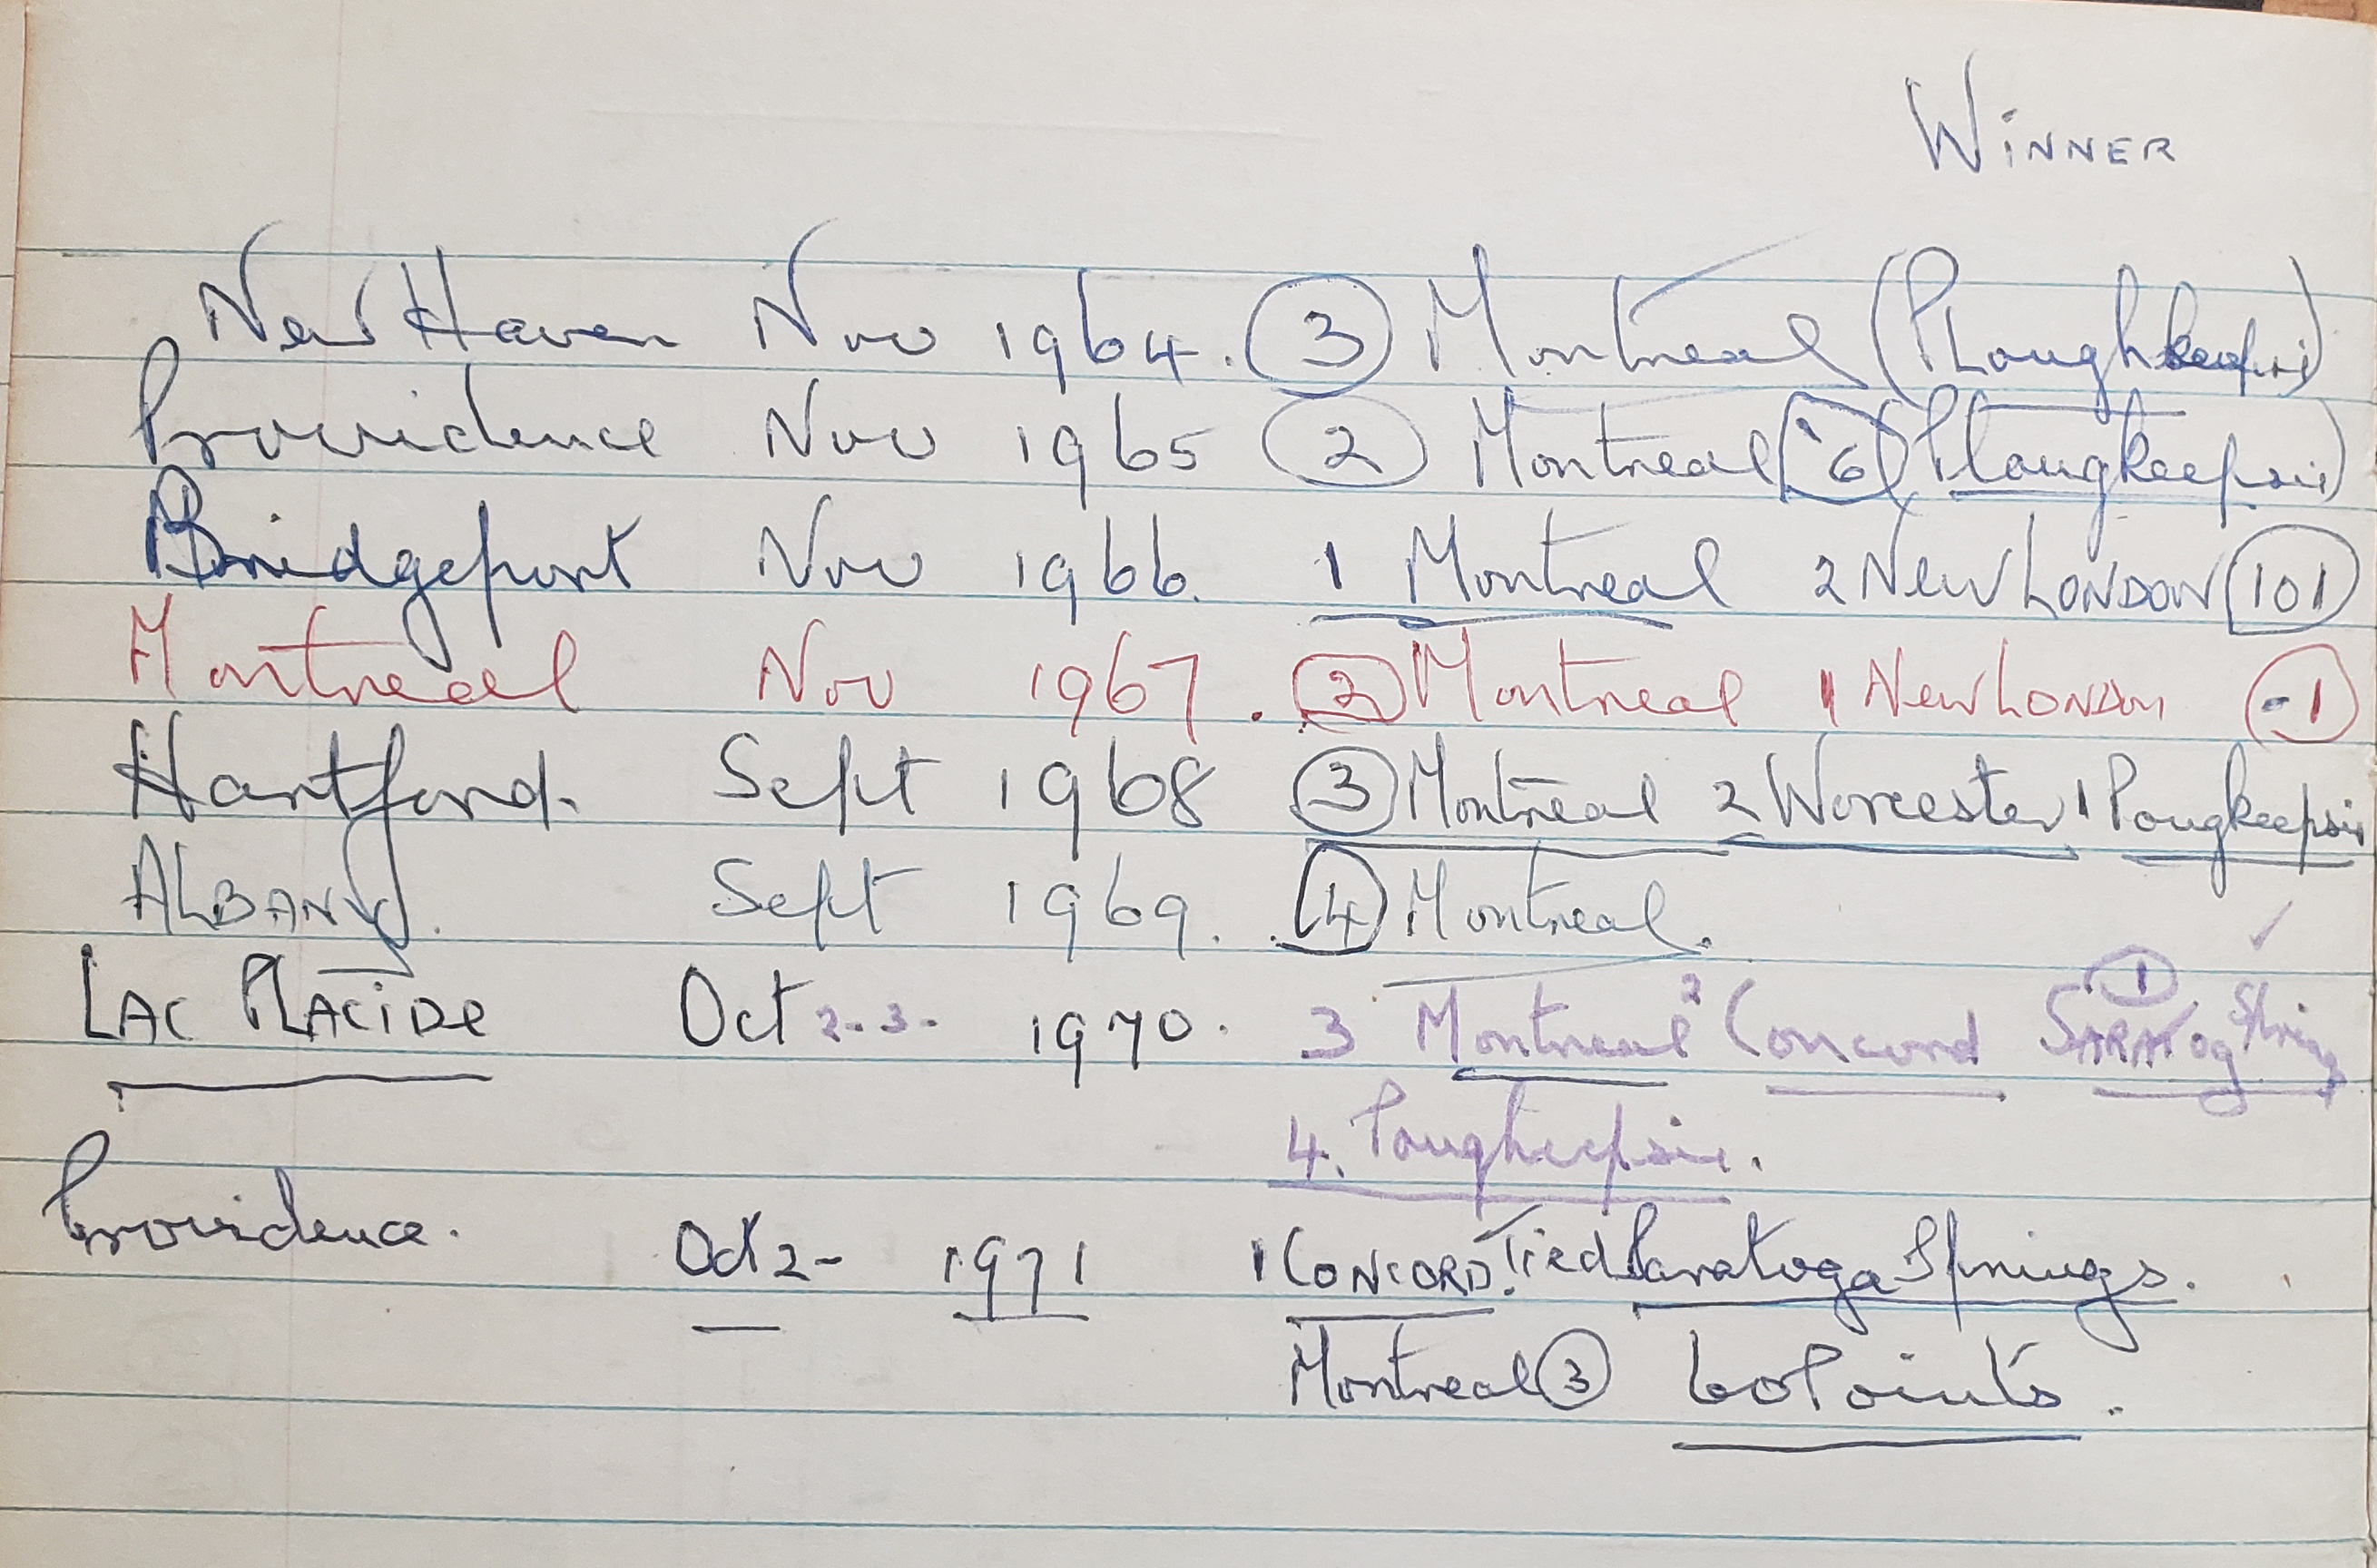 WINNER
New Haven Nov 1964. 3 Montreal (PLoughkeepsie)
Providence Nov 1965 2 Montreal 6 (Plougkeepsie)
Bridgeport Nov 1966. 1 Montreal 2 New LONDON 101
Montreal Nov 1967. 2 Montreal 1 New LONDON -1
Hartford. Sept 1968 3 Montreal 2 Worcester 1 Pougkeepsie
ALBANY. Sept 1969. 4 Montreal.
LAC PLACIDE Oct 2-3- 1970. 3 Montreal 2 Concord SARATOga Springs 1
4. Poughkeepsie.
Providence. Oct 2- 1971 1 CONCORD. Tied Saratoga Springs.
Montreal 3 60 Points.